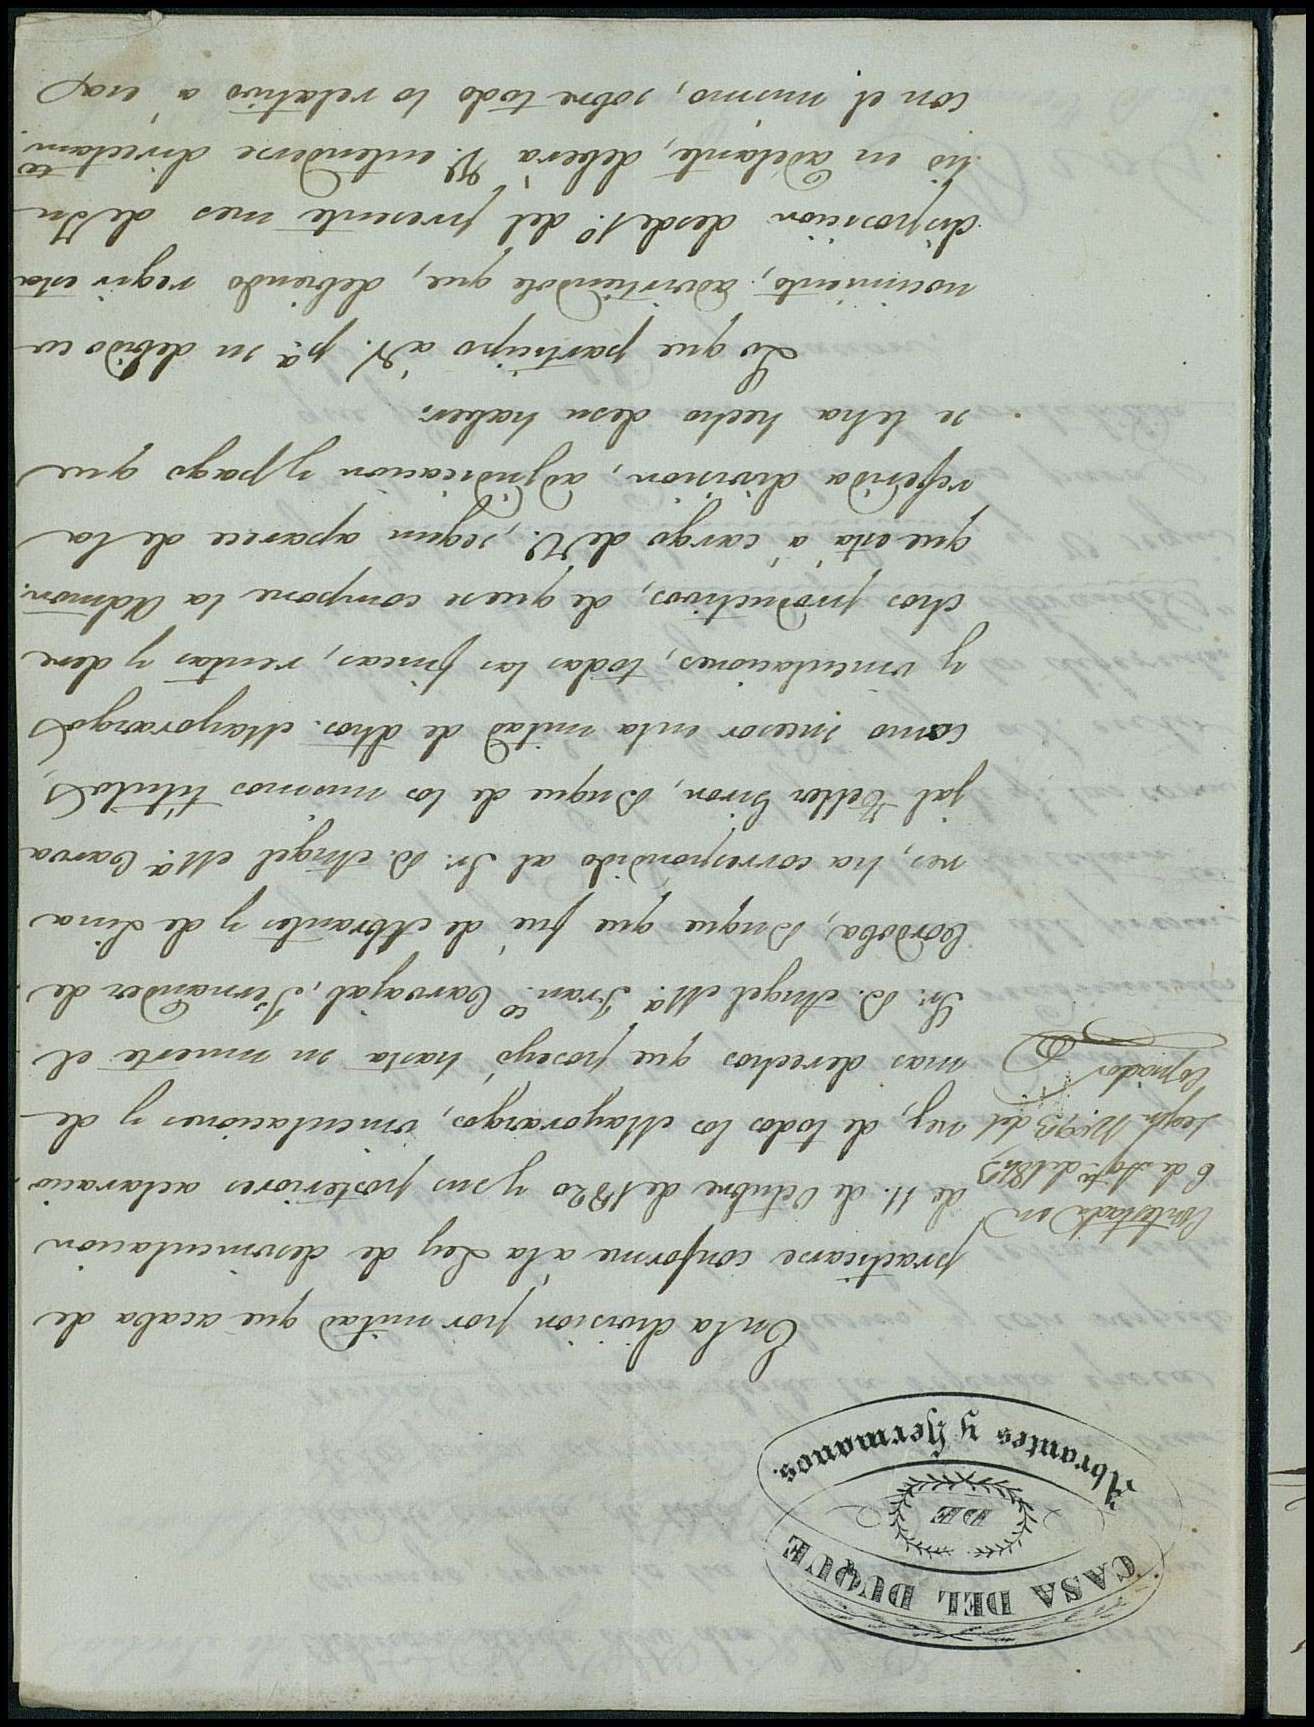 CASA DEL DUQUE
DE
Abrantes y Hermanos.
En la division por mitad que acaba de
practicarse conforme á la Ley de desvinculacion
de 11. de Octubre de 1820 y sus posteriores aclaracio
nes, de todos los Mayorazgos, vinculaciones y de
mas derechos que poseyó, hasta su muerte el
Sr. D. Angel Mª. Fran.co Carvajal, Fernandez de
Cordoba, Duque que fué de Abrantes y de Lina
res, ha correspondido al Sr. D. Angel Mª. Carva
jal Tellez Giron, Duque de los mismos titulos,
como sucesor en la mitad de dhos. Mayorazgos
y vinculaciones, todas las fincas, rentas y dere
chos productivos, de que se compone la Admon.
que está á cargo de V., segun aparece de la
referida division, adjudicacion y pago que
se le ha hecho de su haber.
Lo que participo á V. pª. su debido co
nocimiento, advirtiendole que, debiendo regir esta
disposicion desde 1º. del presente mes de Ju
lio en adelante, deberá V. entenderse directam.te
con el mismo, sobre todo lo relativo á esa
Contestada en
6 de Ag.to de
del
Copiador